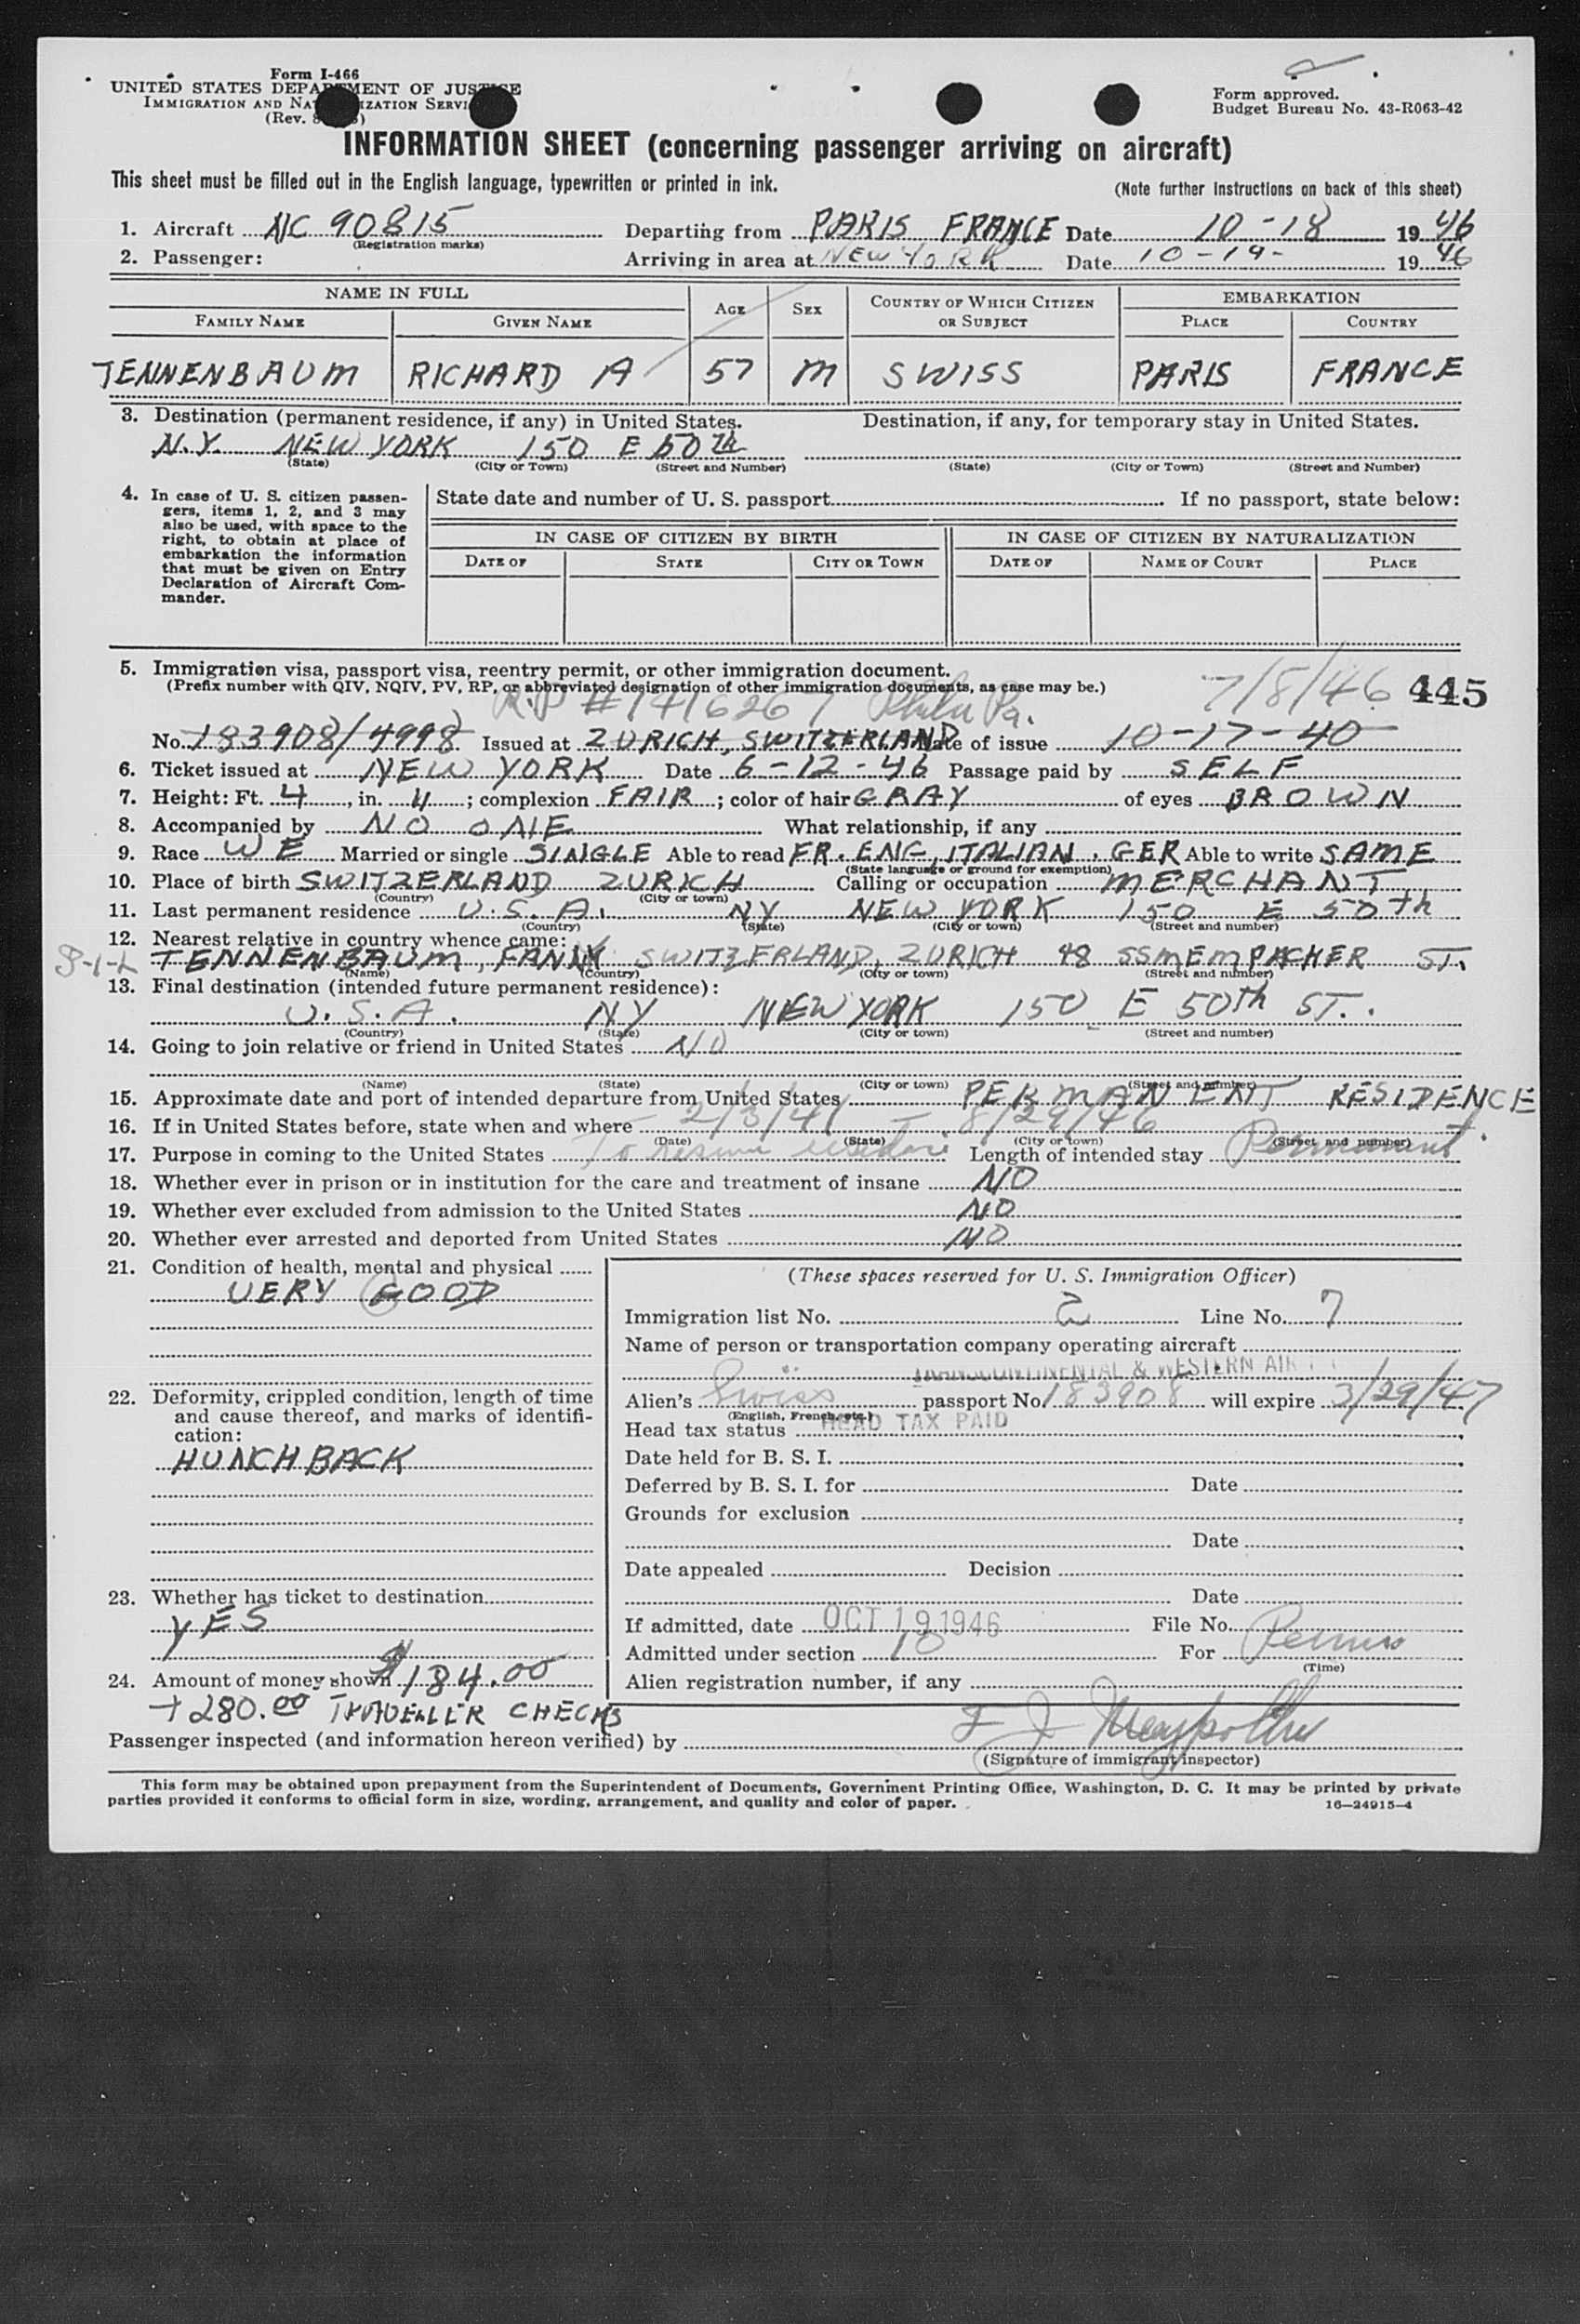 Form I-466
UNITED STATES DEPARTMENT OF JUSTICE
IMMIGRATION AND NATURALIZATION SERVICE
(Rev.
Form approved.
Budget Bureau No. 43-R063-42
INFORMATION SHEET (concerning passenger arriving on aircraft)
This sheet must be filled out in the English language, typewritten or printed in ink.
(Note further instructions on back of this sheet)
1. Aircraft NC 90815 Departing from PARIS FRANCE Date 10-18 1946
(Registration marks)
2. Passenger: Arriving in area at NEW YORK Date 10-19- 1946
NAME IN FULL AGE SEX COUNTRY OF WHICH CITIZEN OR SUBJECT EMBARKATION
FAMILY NAME GIVEN NAME PLACE COUNTRY
TENNENBAUM RICHARD A 57 M SWISS PARIS FRANCE
3. Destination (permanent residence, if any) in United States. Destination, if any, for temporary stay in United States.
N.Y. NEW YORK 150 E 50th
(State) (City or Town) (Street and Number) (State) (City or Town) (Street and Number)
4. In case of U. S. citizen passengers, items 1, 2, and 3 may also be used, with space to the right, to obtain at place of embarkation the information that must be given on Entry Declaration of Aircraft Commander.
State date and number of U. S. passport If no passport, state below:
IN CASE OF CITIZEN BY BIRTH IN CASE OF CITIZEN BY NATURALIZATION
DATE OF STATE CITY OR TOWN DATE OF NAME OF COURT PLACE
5. Immigration visa, passport visa, reentry permit, or other immigration document.
(Prefix number with QIV, NQIV, PV, RP, or abbreviated designation of other immigration documents, as case may be.)
R.P #1416267 Phila Pa. 7/8/46 445
No. 183908/4998 Issued at ZURICH, SWITZERLAND Date of issue 10-17-40
6. Ticket issued at NEW YORK Date 6-12-46 Passage paid by SELF
7. Height: Ft. 4, in. 11; complexion FAIR; color of hair GRAY of eyes BROWN
8. Accompanied by NO ONE What relationship, if any
9. Race WE Married or single SINGLE Able to read FR. ENG, ITALIAN. GER Able to write SAME
(State language or ground for exemption)
10. Place of birth SWITZERLAND ZURICH Calling or occupation MERCHANT
(Country) (City or town)
11. Last permanent residence U.S.A. NY NEW YORK 150 E 50th
(Country) (State) (City or town) (Street and number)
12. Nearest relative in country whence came:
S-i-L TENNENBAUM, FANNY SWITZERLAND, ZURICH 48 SSMEMPACHER ST.
(Name) (Country) (City or town) (Street and number)
13. Final destination (intended future permanent residence):
U.S.A. NY NEW YORK 150 E 50th ST.
(Country) (State) (City or town) (Street and number)
14. Going to join relative or friend in United States NO
(Name) (State) (City or town) (Street and number)
15. Approximate date and port of intended departure from United States PERMANENT RESIDENCE
16. If in United States before, state when and where 2/3/41 - 8/29/46
(Date) (State) (City or town) (Street and number)
17. Purpose in coming to the United States To resume residence Length of intended stay Permanent
18. Whether ever in prison or in institution for the care and treatment of insane NO
19. Whether ever excluded from admission to the United States NO
20. Whether ever arrested and deported from United States NO
21. Condition of health, mental and physical
VERY GOOD
22. Deformity, crippled condition, length of time and cause thereof, and marks of identification:
HUNCHBACK
23. Whether has ticket to destination
YES
24. Amount of money shown $184.00
+280.00 TRAVELLER CHECKS
(These spaces reserved for U. S. Immigration Officer)
Immigration list No. 2 Line No. 7
Name of person or transportation company operating aircraft
TRANSCONTINENTAL & WESTERN AIR
Alien's Swiss passport No. 183908 will expire 3/29/47
(English, French, etc.)
Head tax status HEAD TAX PAID
Date held for B. S. I.
Deferred by B. S. I. for Date
Grounds for exclusion
Date
Date appealed Decision
Date
If admitted, date OCT 19 1946 File No.
Admitted under section 10 For
(Time)
Alien registration number, if any
Passenger inspected (and information hereon verified) by
(Signature of immigrant inspector)
This form may be obtained upon prepayment from the Superintendent of Documents, Government Printing Office, Washington, D. C. It may be printed by private
parties provided it conforms to official form in size, wording, arrangement, and quality and color of paper.
16-24915-4